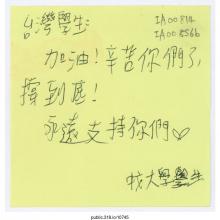 台灣學生
IA00814
加油！辛苦你們了，
撐到甚！
永遠支持你們♡
大學學生
public.318.io/0745